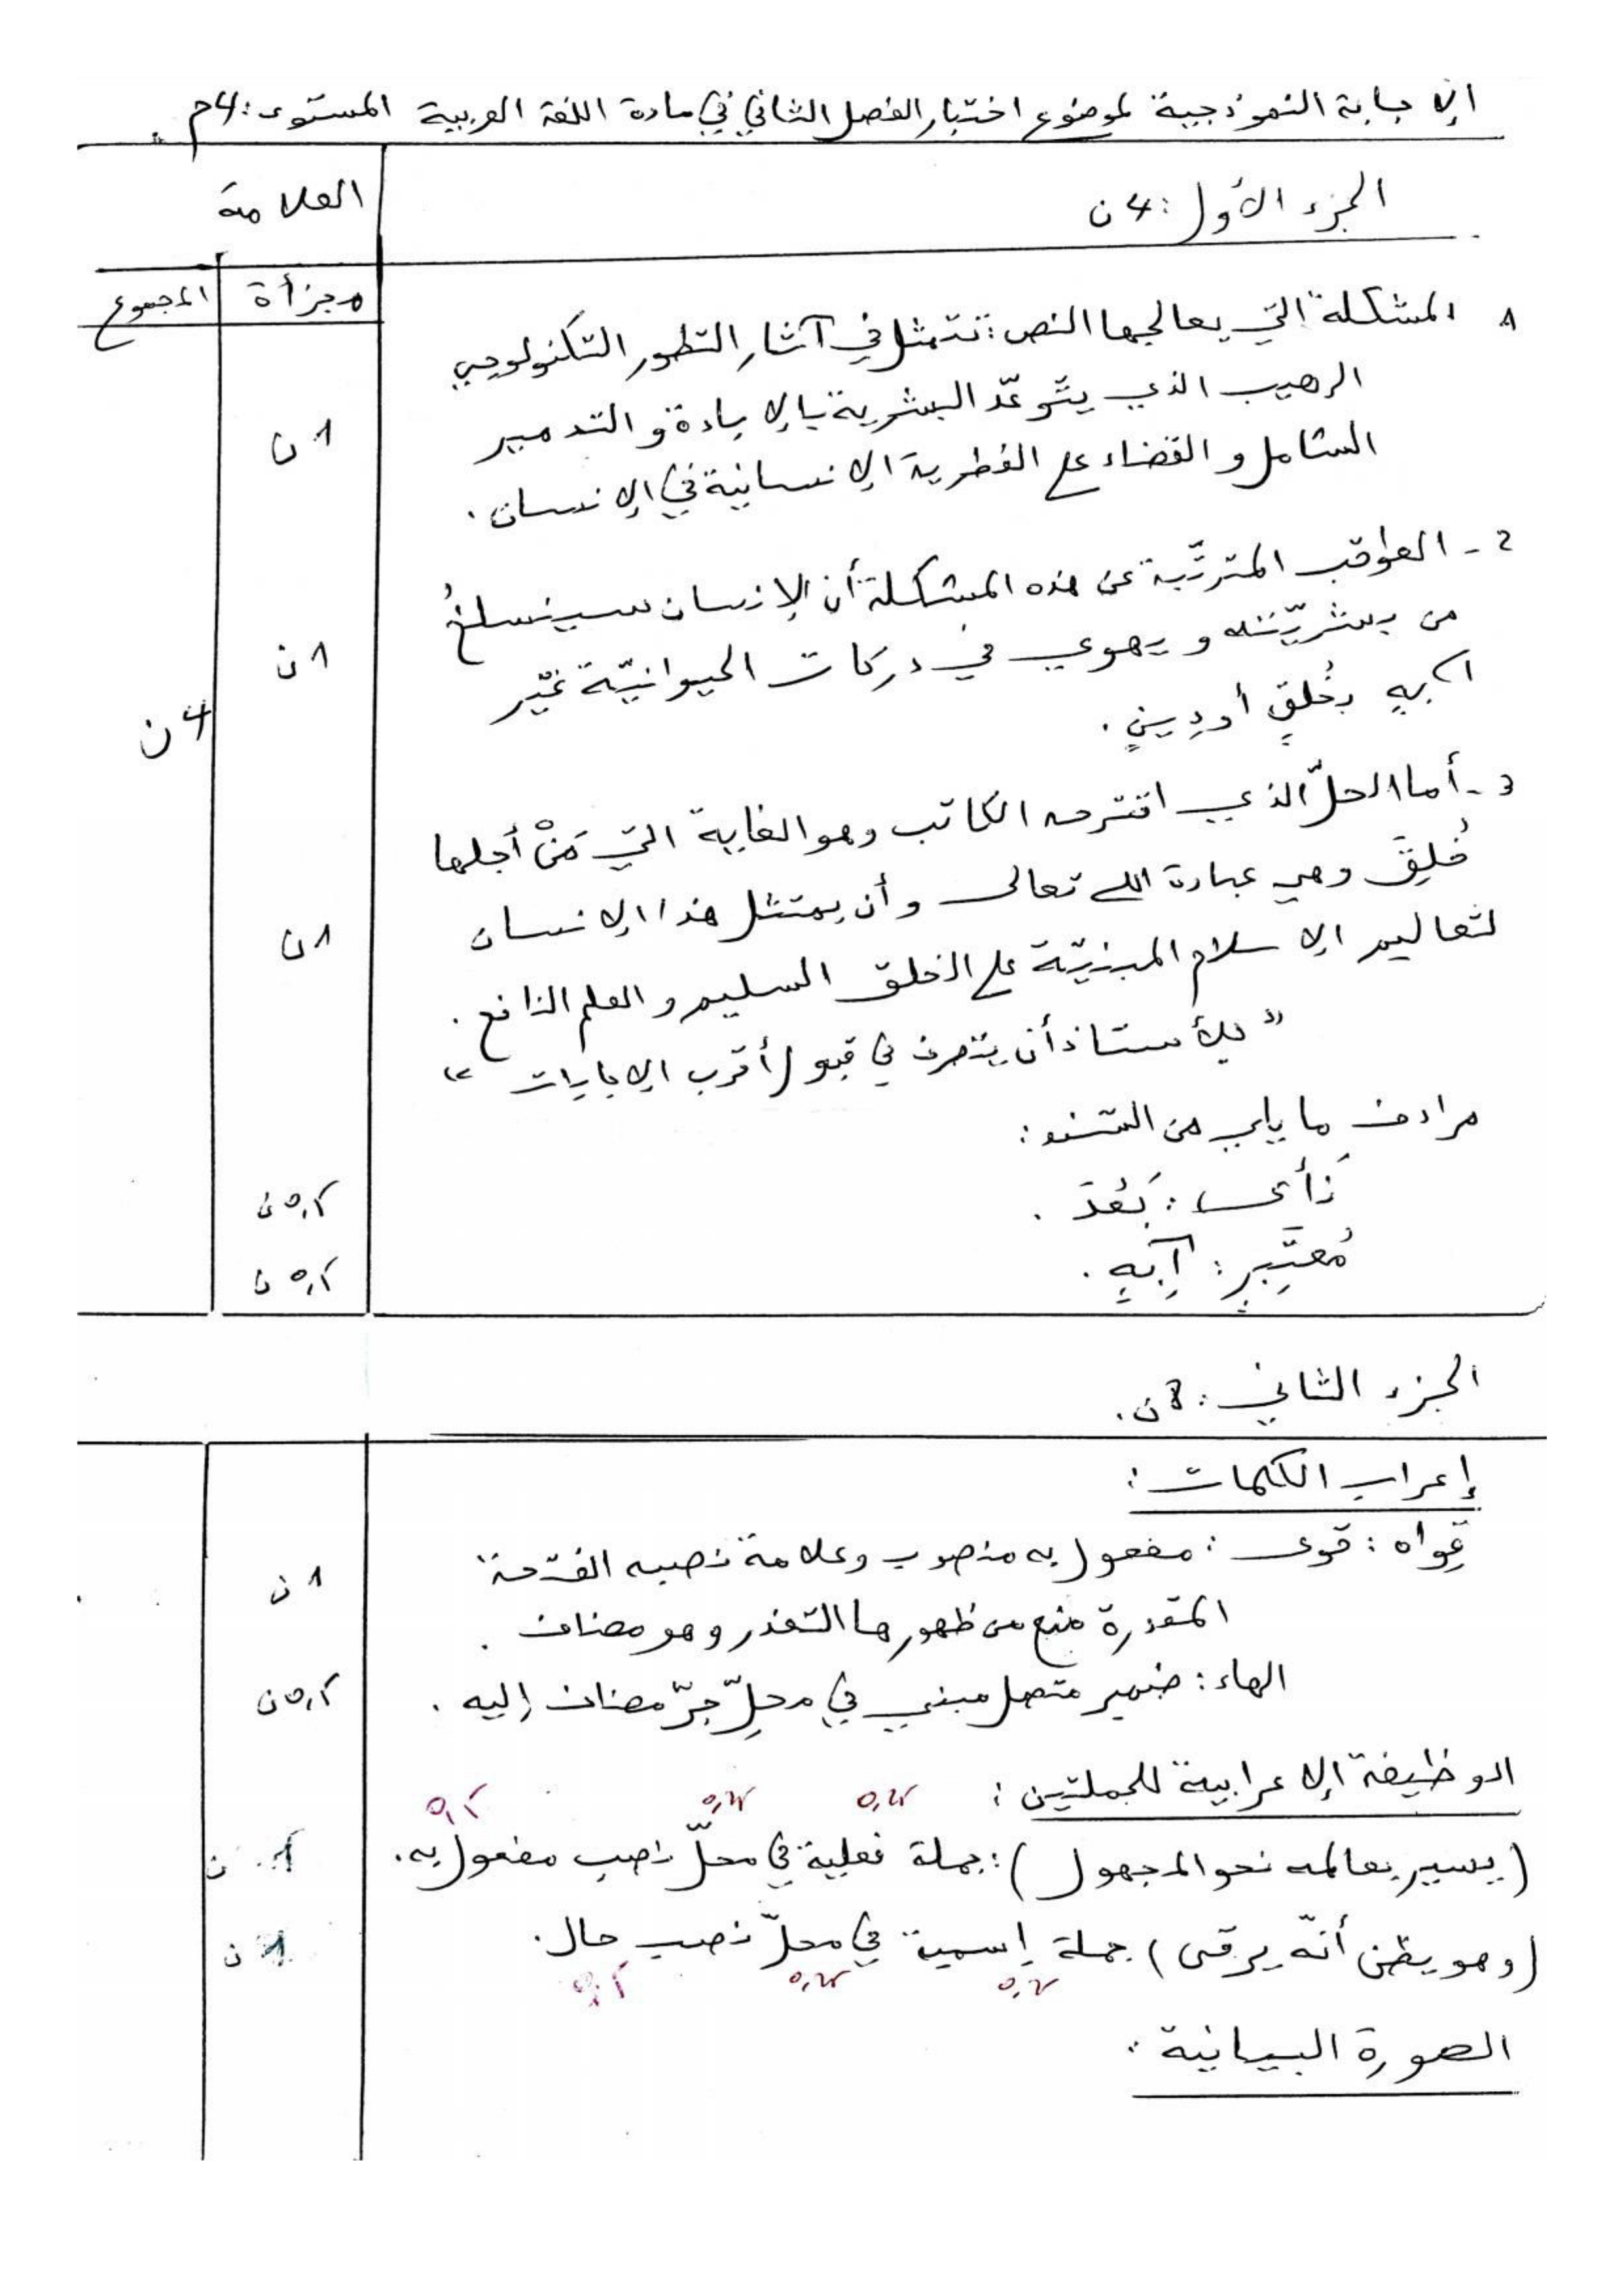 الإجابة النموذجية لموضوع اختبار الفصل الثاني في مادة اللغة العربية المستوى: 4م
الجزء الأول: 4ن
العلامة
مجزأة
المجموع
1 المشكلة التي يعالجها النص: تتمثل في آثار التطور التكنولوجي
الرهيب الذي يتوعّد البشرية بالإبادة و التدمير
1ن
الشامل و القضاء على الفطرية الإنسانية في الإنسان.
2- العواقب المترتّبة عن هذه المشكلة أن الإنسان سينسلخُ
من بشريّته و يهوي في دركات الحيوانيّة غيْر
1ن
آبهٍ بخُلقٍ أو دِينٍ.
4ن
3- أما الحلّ الذي اقترحه الكاتب وهو الغاية التي مِنْ أجلها
خُلِقَ وهي عبادة الله تعالى وأن يمتثل هذا الإنسان
1ن
لتعاليم الإسلام المبنيّة على الخلق السليم و العلم النافع.
"للأستاذ أن يتصرف في قبول أقرب الإجابات"
مرادف ما يلي من السّند:
نَأى: بَعُدَ.
0,5ن
مُعتَبِرٍ: آبِهٍ.
0,5ن
الجزء الثاني: 8ن.
إعراب الكلمات:
قِواه: قوى: مفعول به منصوب وعلامة نصبه الفتحة
1ن
المقدرة منع من ظهورها التعذر و هو مضاف.
الهاء: ضمير متصل مبني في محلِّ جرّ مضاف إليه.
0,5ن
الوظيفة الإعرابية للجملتين:
0,25
0,25
0,5
(يسير بعالمه نحو المجهول): جملة فعلية في محلّ نصب مفعول به.
1ن
(وهو يظن أنّه يرقى) جملة إسمية في محلّ نصب حال.
1ن
0,25
0,25
0,5
الصورة البيانية: